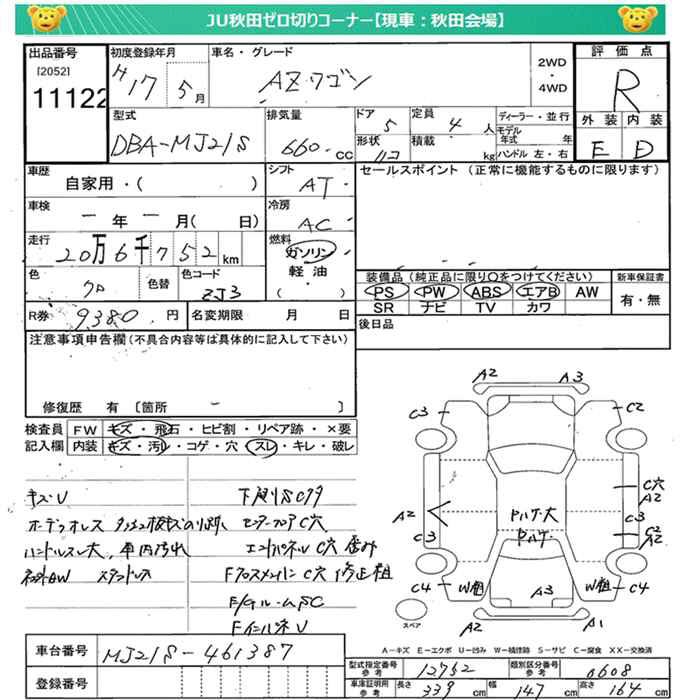 JU秋田ゼロ切りコーナー【現車：秋田会場】
出品番号
[2052]
11122
初度登録年月
H17 5月
車名・グレード
AZ-ワゴン
2WD
・
4WD
評価点
R
外装 内装
E D
型式
DBA-MJ21S
排気量
660 cc
ドア
5
定員
4 人
形状
積載
kg
ディーラー・並行
モデル年式 年
ハンドル 左・右
車歴
自家用・( )
シフト
AT
セールスポイント (正常に機能するものに限ります)
車検
ー年ー月( 日)
冷房
AC
走行
20万6千752km
燃料
ガソリン
軽油
( )
色
クロ
色替
色コード
ZJ3
装備品 (純正品に限り○をつけてください)
PS PW ABS エアB AW
SR ナビ TV カワ
新車保証書
有・無
R券
9,380 円
名変期限 月 日
後日品
注意事項申告欄 (不具合内容等は具体的に記入して下さい)
修復歴 有 [箇所 ]
検査員記入欄
FW キズ・飛石・ヒビ割・リペア跡・×要
内装 キズ・汚レ・コゲ・穴・スレ・キレ・破レ
キズU
下廻りSCサタ
オーデッオレス
センターフロアC穴
ハンドルスレ大, 車内汚れ
エンドパネルU C穴 歪み
社外AW
スタッドレス
Fクロスメンバー C穴 修正粗
Fインパネ U
A2 A3
C3 C2
C穴
A2
A2
C3
C3
C2
A2
Pハゲ・大
Pハゲ・
C4 W粗 W粗 C4
A3
A2 A1
スペア
A－キズ E－エクボ U－凹み W－補修跡 S－サビ C－腐食 XX－交換済
車台番号
MJ21S-461387
登録番号
型式指定番号
参考
12762
類別区分番号
参考
0608
車庫証明用
参考
長さ 339 cm
幅 147 cm
高さ 164 cm